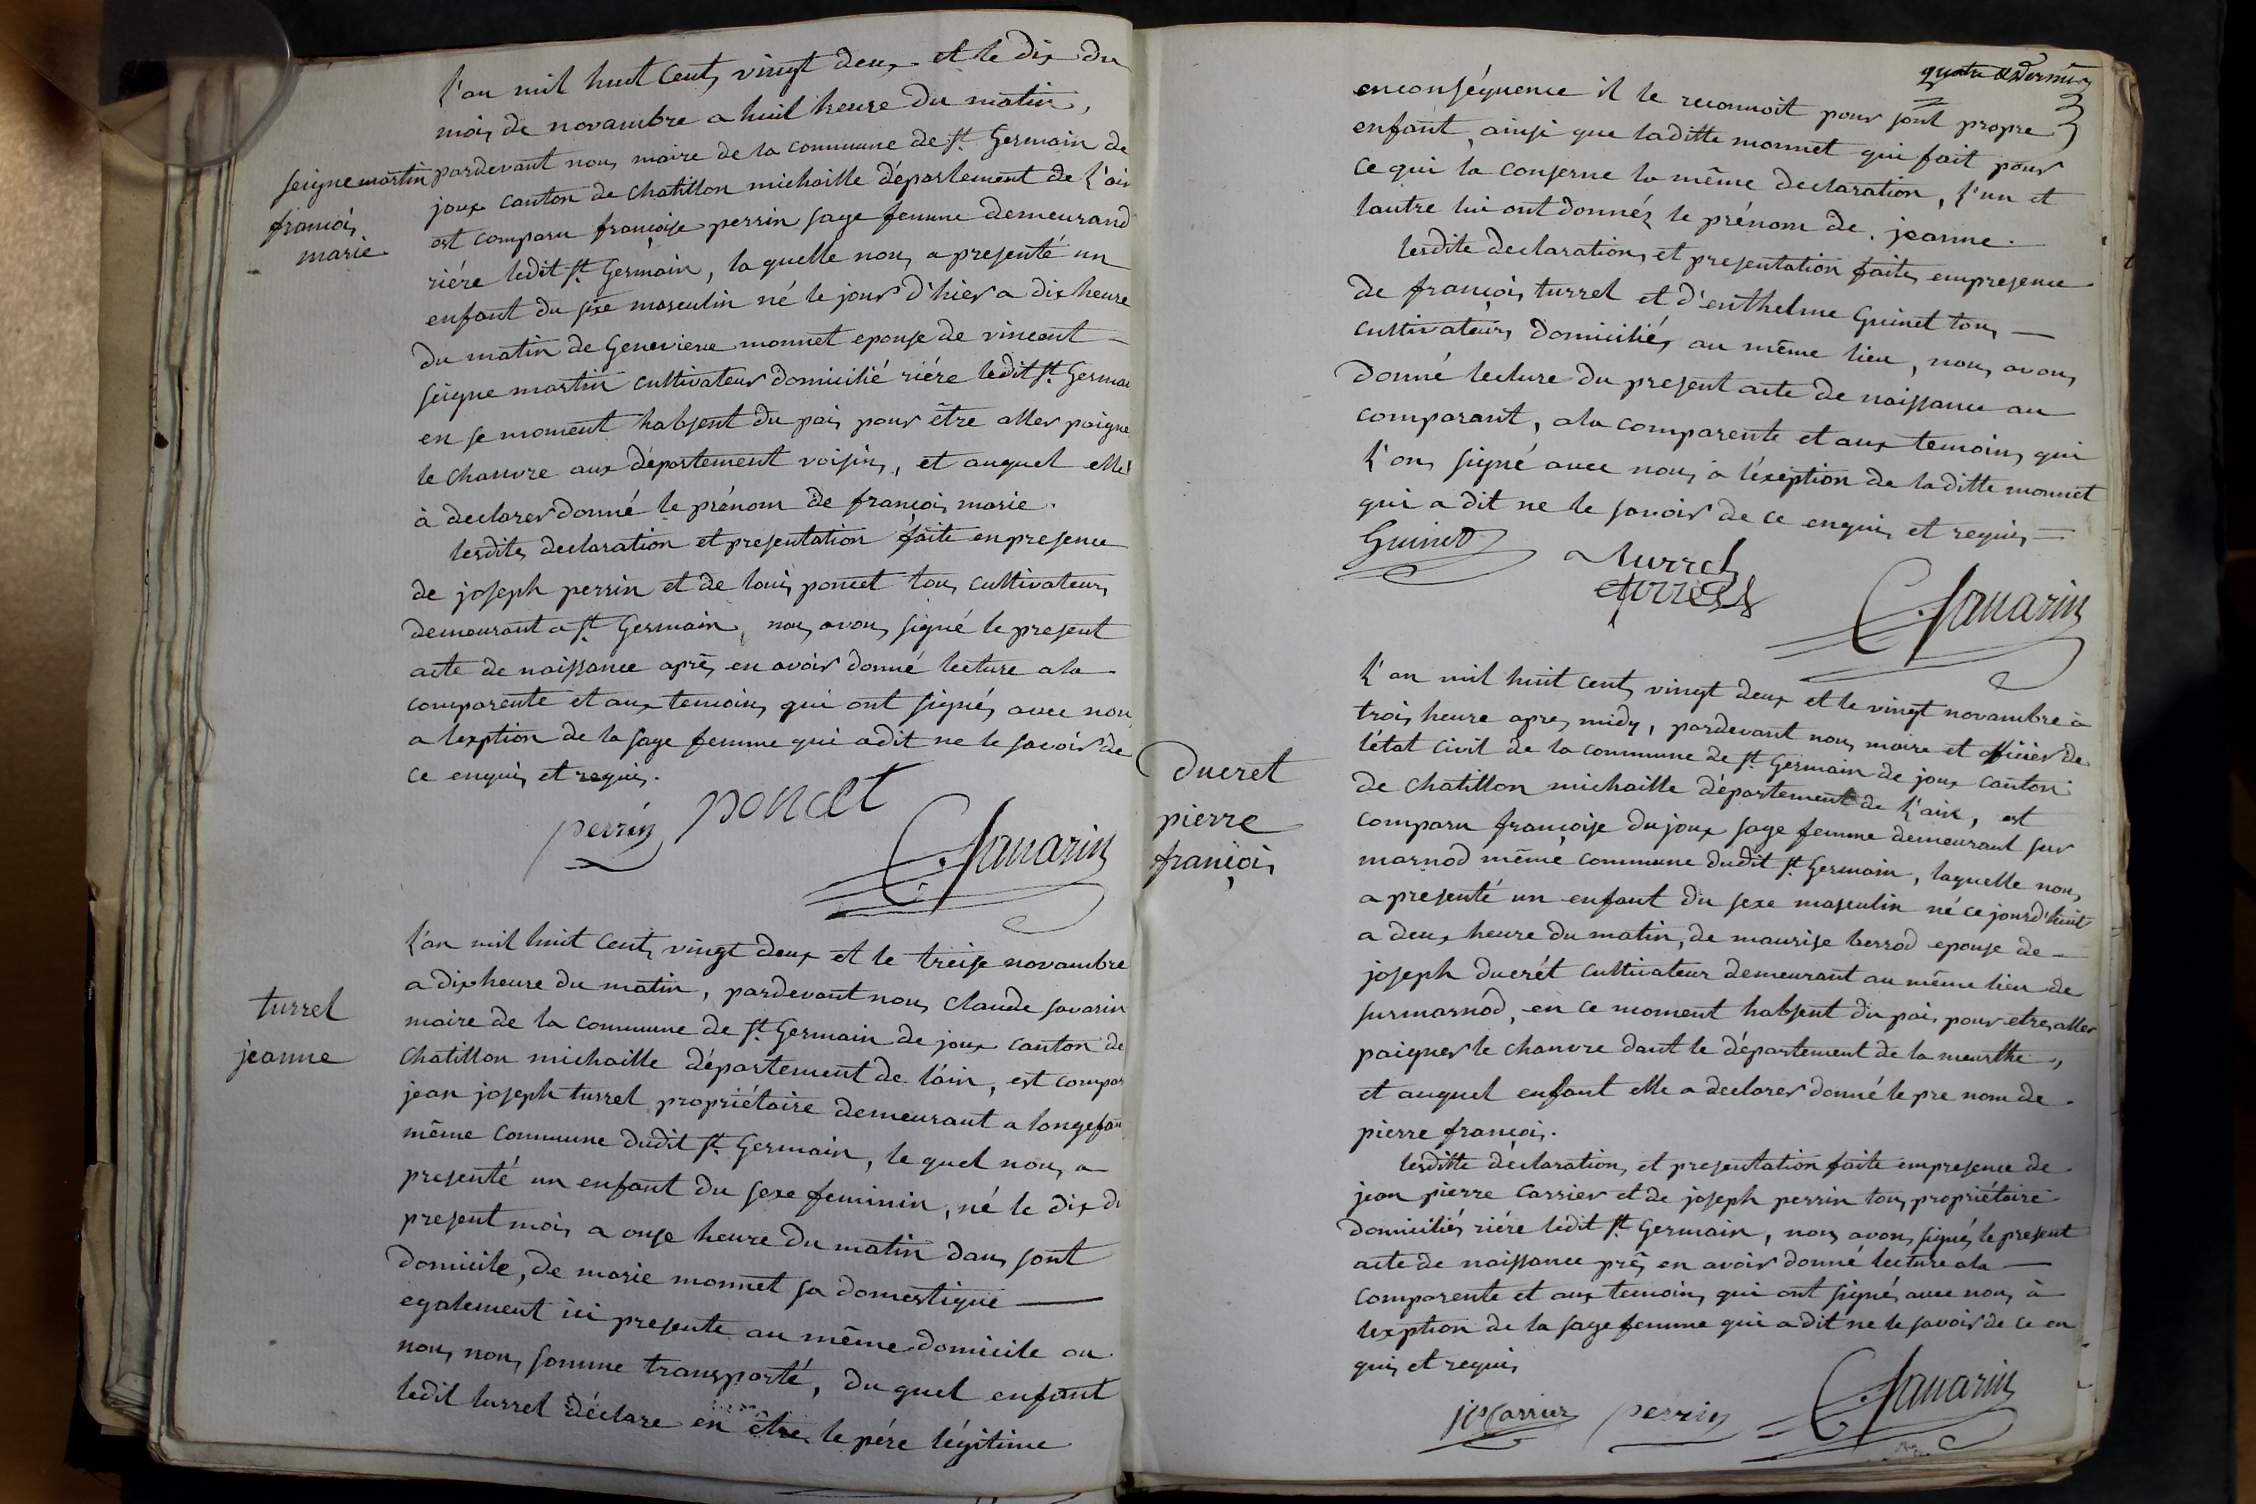 l'an mil huit cent, vingt deux et le dix du
mois de novambre a huit heure du matin,
seigne martin
françois
marie
pardevant nous maire de la commune de st. Germain de
joux canton de chatillon michaille département de l'ain
est comparu françoise perrin sage femme demeurand
riére ledit st. Germain, la quelle nous a presenté un
enfant du sexe masculin né le jour d'hier a dix heure
du matin de Genevieve monnet epouse de vincent
seigne martin cultivateur domicilié riére ledit st. Germain
en se moment habsent du pais pour être aller paigne
le chanvre aux département voisins, et auquel elle
à declarer donné le prénom de françois marie.
lesdites declaration et presentation faite en presence
de joseph perrin et de louis poncet tous cultivateurs
demeurant a st. Germain, nous avons signé le present
acte de naissance après en avoir donné lecture a la
comparente et aux temoins qui ont signés avec nous
a lexption de la sage femme qui a dit ne le savoir de
ce enquis et requis.
perrin poncet
C. Savarin
turrel
jeanne
l'an mil huit cent, vingt deux et le treise novambre
a dix heure du matin, pardevant nous Claude savarin
maire de la commune de st. Germain de joux canton de
Chatillon michaille département de láin, est compar
jean joseph turrel propriétaire demeurant a longefan
même commune dudit st. Germain, le quel nous a
presenté un enfant du sexe feminin, né le dix du
present mois a onse heure du matin dans sont
domicile, de marie monnet sa domestique
egalement ici presente au même domicile ou
nous nous somme transporté, du quel enfant
ledit turrel déclare en être le pére légitime
quatre & dernier
enconséquence il le reconnoit pour sont propre
enfant, ainsi que laditte monnet qui fait pour
ce qui la conserne la même declaration, l'un et
lautre lui ont donnés le prénom de. jeanne.
lesdite declarations et presentation faites empresence
de françois turrel et d'enthelme Guinet tous
cultivateurs domiciliés au même lieu, nous avons
donné lecture du present acte de naissance au
comparant, a la comparente et aux temoins qui
l'ons signé avec nous à l'éxeption de laditte monnet
qui a dit ne le savoir de ce enquis et requis
Guinet turrel
turrel
C. Savarin
ducret
pierre
françois
l'an mil huit cent, vingt deux et le vingt novambre à
trois heure apres midy, pardevant nous maire et officier de
létat civil de la commune de st. Germain de joux canton
de chatillon michaille département de l'ain, est
comparu françoise dujoux sage femme demeurant sur
marnod même commune dudit st. Germain, laquelle nous
a presenté un enfant du sexe masculin né ce jourd'huit
a deux heure du matin, de maurise berrod epouse de
joseph ducrét cultivateur demeurant au même lieu de
surmarnod, en ce moment habsent du pais pour etre aller
paigner le chanvre dant le département de la meurthe,
et auquel enfant elle a declarer donné le pre nom de
pierre françois.
lesditte déclarations et presentation faite empresence de
jean pierre carrier et de joseph perrin tous propriétaire
domiciliés riére lédit st. Germain, nous avons signés le present
acte de naissance prês en avoir donné lecture a la
comparente et aux temoins qui ont signé avec nous à
lexption de la sage femme qui a dit ne le savoir de ce en
quis et requis
jp Carrier perrin C. Savarin